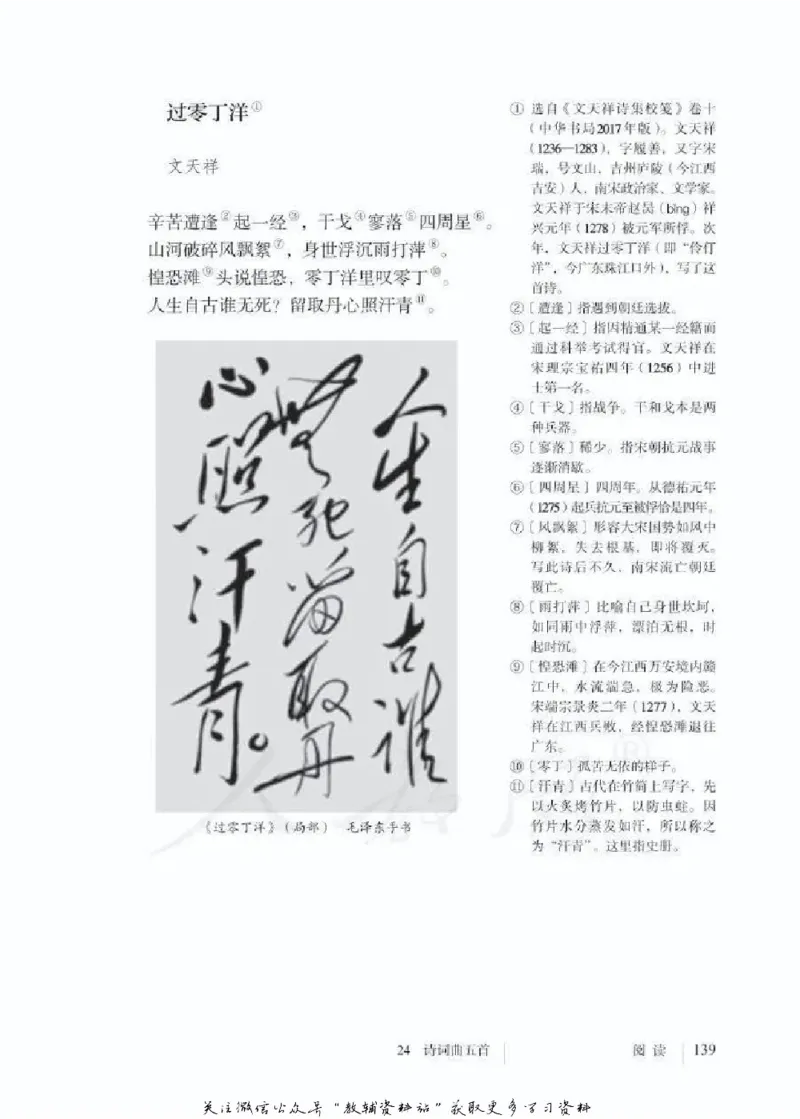 过零丁洋①
文天祥
辛苦遭逢②起一经③，干戈④寥落⑤四周星⑥。
山河破碎风飘絮⑦，身世浮沉雨打萍⑧。
惶恐滩⑨头说惶恐，零丁洋里叹零丁⑩。
人生自古谁无死？留取丹心照汗青⑪。
人生自古谁
无死留取丹
心照汗青。
《过零丁洋》（局部） 毛泽东手书
① 选自《文天祥诗集校笺》卷十
（中华书局2017年版）。文天祥
（1236—1283），字履善，又字宋
瑞，号文山，吉州庐陵（今江西
吉安）人，南宋政治家、文学家。
文天祥于宋末帝赵昺（bǐng）祥
兴元年（1278）被元军所俘。次
年，文天祥过零丁洋（即“伶仃
洋”，今广东珠江口外），写了这
首诗。
②［遭逢］指遇到朝廷选拔。
③［起一经］指因精通某一经籍而
通过科举考试得官。文天祥在
宋理宗宝祐四年（1256）中进
士第一名。
④［干戈］指战争。干和戈本是两
种兵器。
⑤［寥落］稀少。指宋朝抗元战事
逐渐消歇。
⑥［四周星］四周年。从德祐元年
（1275）起兵抗元至被俘恰是四年。
⑦［风飘絮］形容大宋国势如风中
柳絮，失去根基，即将覆灭。
写此诗后不久，南宋流亡朝廷
覆亡。
⑧［雨打萍］比喻自己身世坎坷，
如同雨中浮萍，漂泊无根，时
起时沉。
⑨［惶恐滩］在今江西万安境内赣
江中，水流湍急，极为险恶。
宋端宗景炎二年（1277），文天
祥在江西兵败，经惶恐滩退往
广东。
⑩［零丁］孤苦无依的样子。
⑪［汗青］古代在竹简上写字，先
以火炙烤竹片，以防虫蛀。因
竹片水分蒸发如汗，所以称之
为“汗青”。这里指史册。
24 诗词曲五首 阅读 139
关注微信公众号“教辅资料站”获取更多学习资料